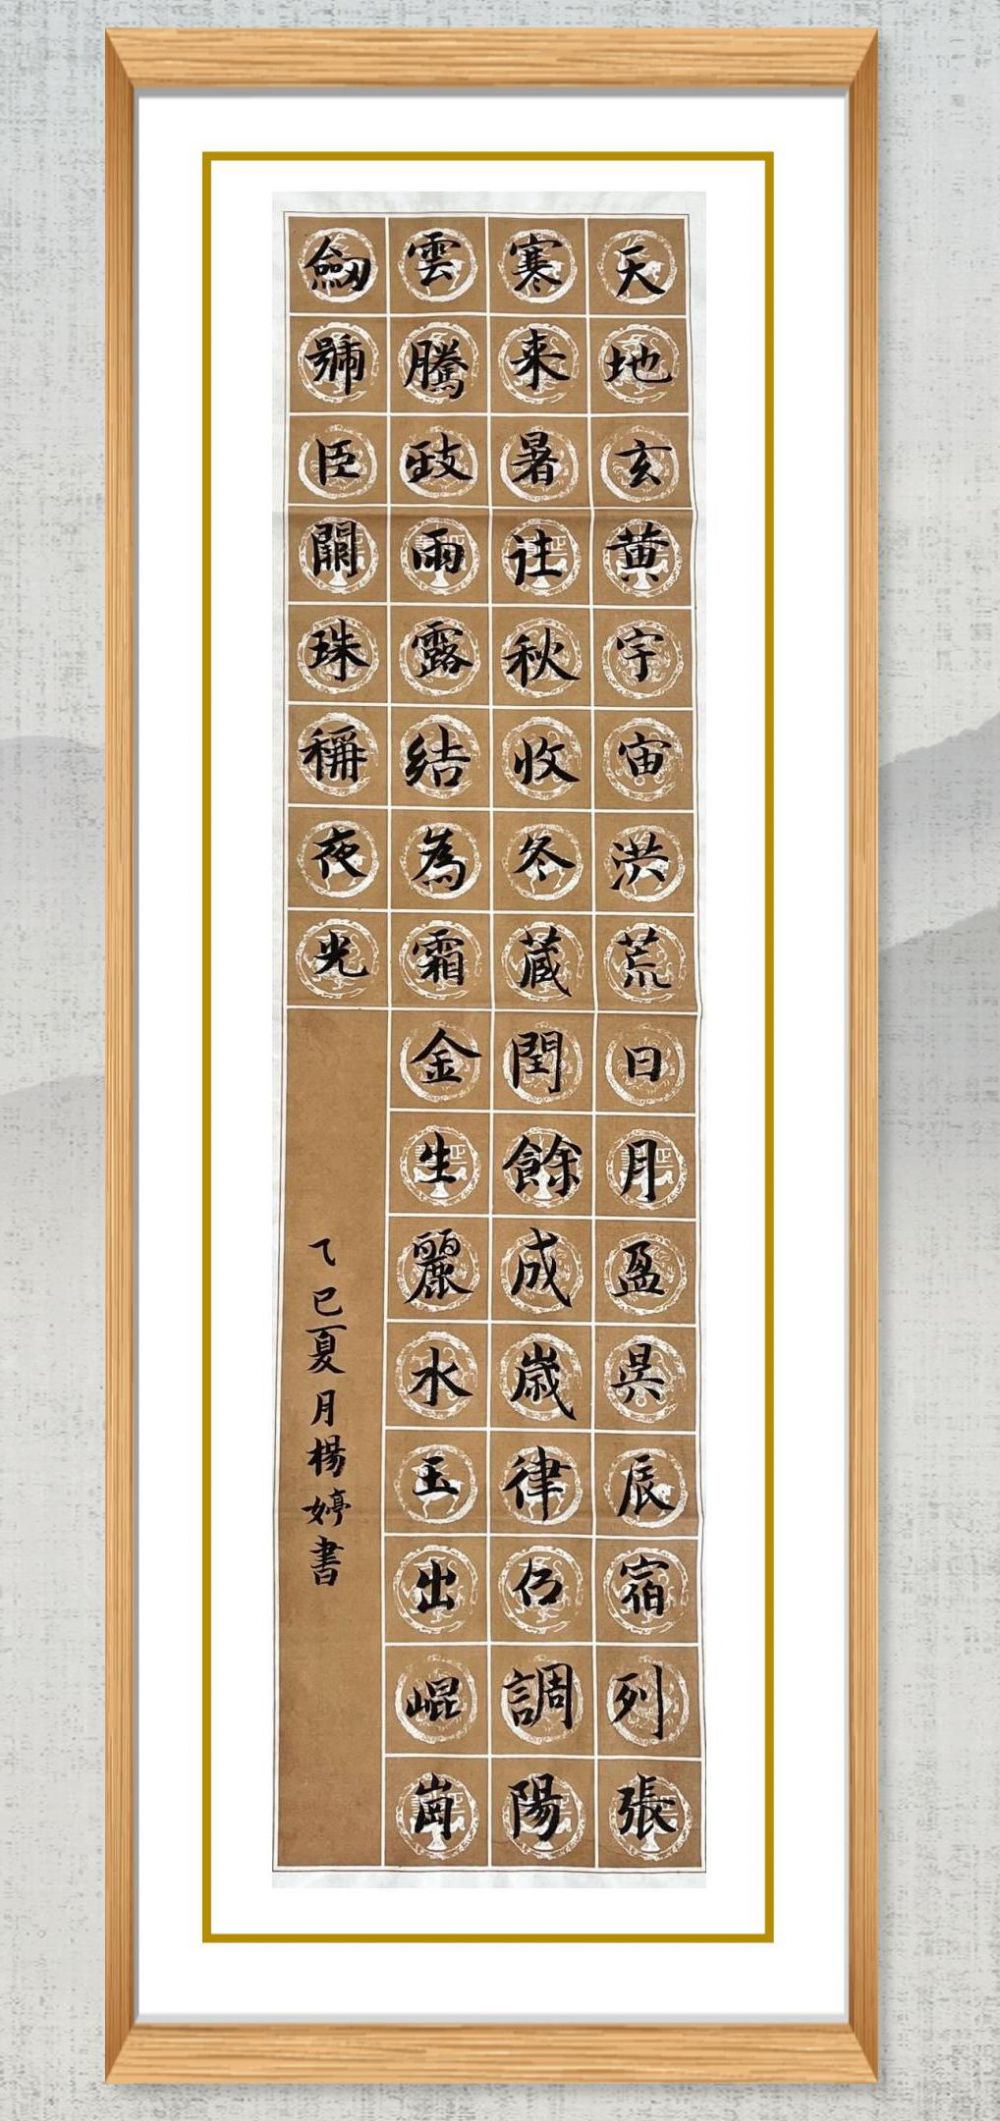 天地玄黄宇宙洪荒日月盈昃辰宿列張
寒来暑往秋收冬蔵閏餘成歳律調陽
雲騰致雨露結為霜金生麗水玉出崐崗
劔號巨闕珠稱夜光
乙巳夏月楊婷書